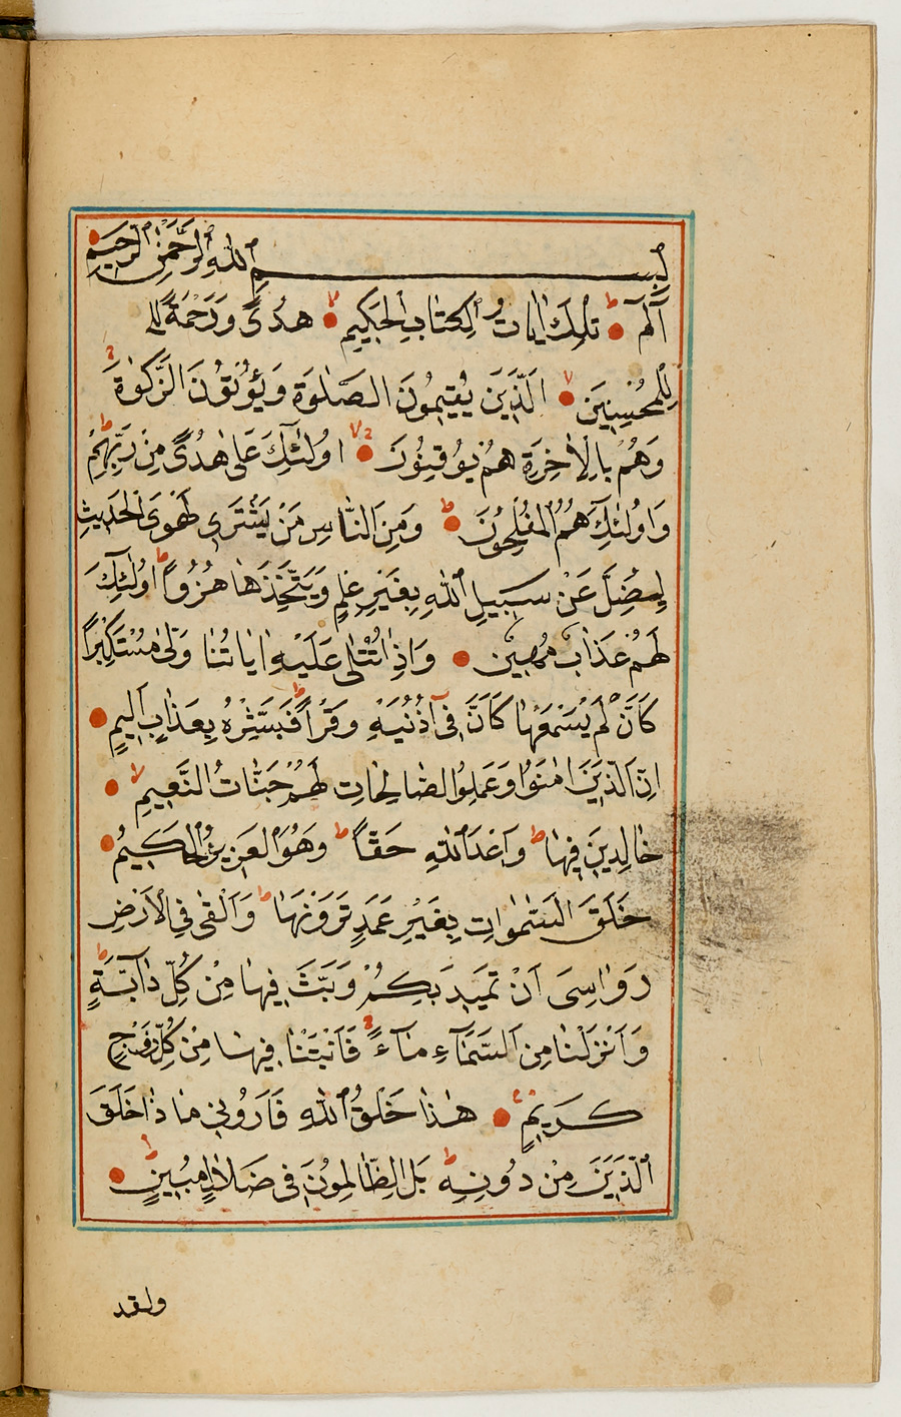 بِسْمِ اللّٰهِ الرَّحْمٰنِ الرَّحِيمِ
آلٓمٓ ط تِلْكَ اٰيَاتُ الْكِتَابِ الْحَكِيمِ لا هُدًى وَرَحْمَةً لِلْ
لِلْمُحْسِنِينَ لا اَلَّذِينَ يُقِيمُونَ الصَّلٰوةَ وَيُؤْتُونَ الزَّكٰوةَ
وَهُمْ بِالْاٰخِرَةِ هُمْ يُوقِنُونَ اُولٰئِكَ عَلٰى هُدًى مِنْ رَبِّهِمْ ط
وَاُولٰئِكَ هُمُ الْمُفْلِحُونَ ط وَمِنَ النَّاسِ مَنْ يَشْتَرِى لَهْوَ الْحَدِيثِ
لِيُضِلَّ عَنْ سَبِيلِ اللّٰهِ بِغَيْرِ عِلْمٍ وَيَتَّخِذَهَا هُزُوًا ط اُولٰئِكَ
لَهُمْ عَذَابٌ مُهِينٌ وَاِذَا تُتْلٰى عَلَيْهِ اٰيَاتُنَا وَلّٰى مُسْتَكْبِرًا
كَاَنْ لَمْ يَسْمَعْهَا كَاَنَّ فِى اُذُنَيْهِ وَقْرًا ط فَبَشِّرْهُ بِعَذَابٍ اَلِيمٍ
اِنَّ الَّذِينَ اٰمَنُوا وَعَمِلُوا الصَّالِحَاتِ لَهُمْ جَنَّاتُ النَّعِيمِ لا
خَالِدِينَ فِيهَا ط وَعْدَ اللّٰهِ حَقًّا ط وَهُوَ الْعَزِيزُ الْحَكِيمُ
خَلَقَ السَّمٰوَاتِ بِغَيْرِ عَمَدٍ تَرَوْنَهَا ط وَاَلْقٰى فِى الْاَرْضِ
رَوَاسِىَ اَنْ تَمِيدَ بِكُمْ وَبَثَّ فِيهَا مِنْ كُلِّ دَابَّةٍ ط
وَاَنْزَلْنَا مِنَ السَّمَاءِ مَاءً فَاَنْبَتْنَا فِيهَا مِنْ كُلِّ زَوْجٍ
كَرِيمٍ هٰذَا خَلْقُ اللّٰهِ فَاَرُونِى مَاذَا خَلَقَ
الَّذِينَ مِنْ دُونِهِ ط بَلِ الظَّالِمُونَ فِى ضَلَالٍ مُبِينٍ
ولقد